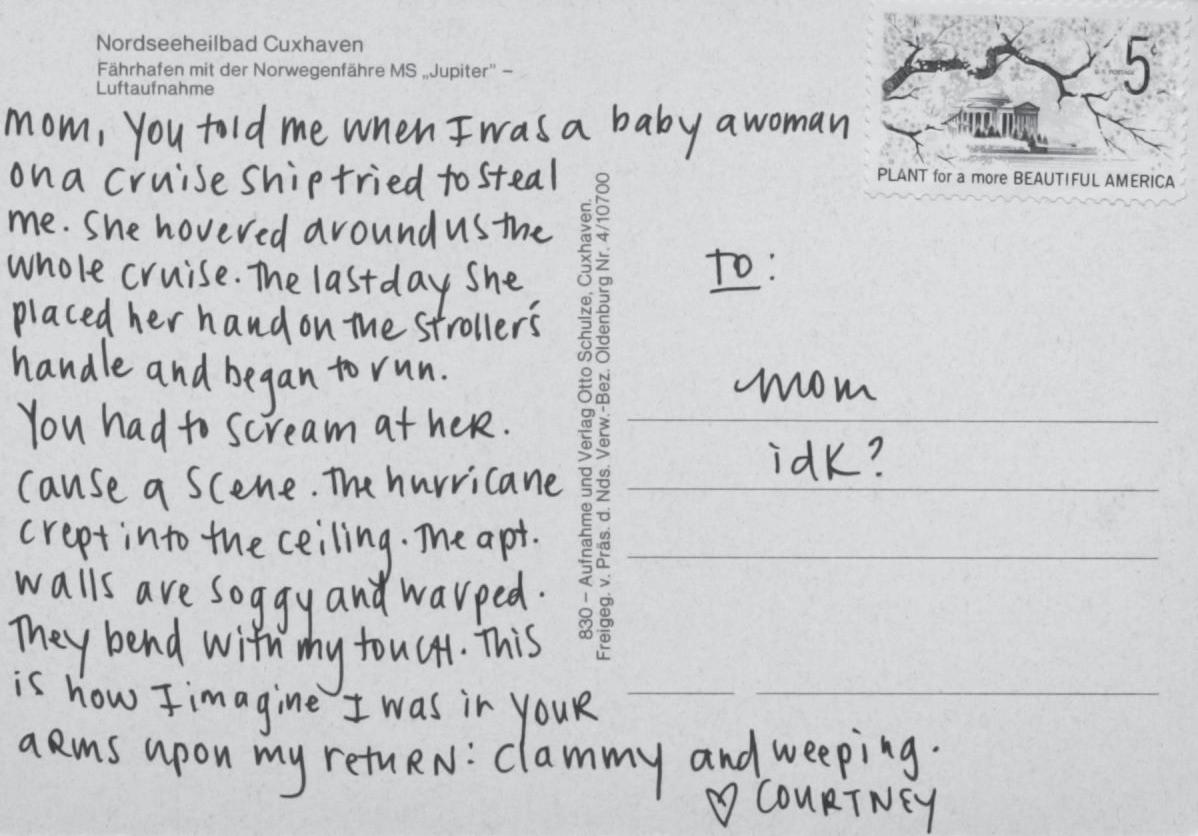 Nordseeheilbad Cuxhaven
Fährhafen mit der Norwegenfähre MS „Jupiter" –
Luftaufnahme
5c
U.S. POSTAGE
PLANT for a more BEAUTIFUL AMERICA
mom, You told me when I was a baby a woman
on a cruise ship tried to steal
me. She hovered around us the
whole cruise. The last day she
placed her hand on the stroller's
handle and began to run.
You had to scream at her.
cause a scene. The hurricane
crept into the ceiling. The apt.
walls are soggy and warped.
They bend with my touch. This
is how I imagine I was in your
arms upon my return: clammy and weeping.
♡ COURTNEY
830 – Aufnahme und Verlag Otto Schulze, Cuxhaven.
Freigeg. v. Präs. d. Nds. Verw.-Bez. Oldenburg Nr. 4/10700
TO:
mom
idk?